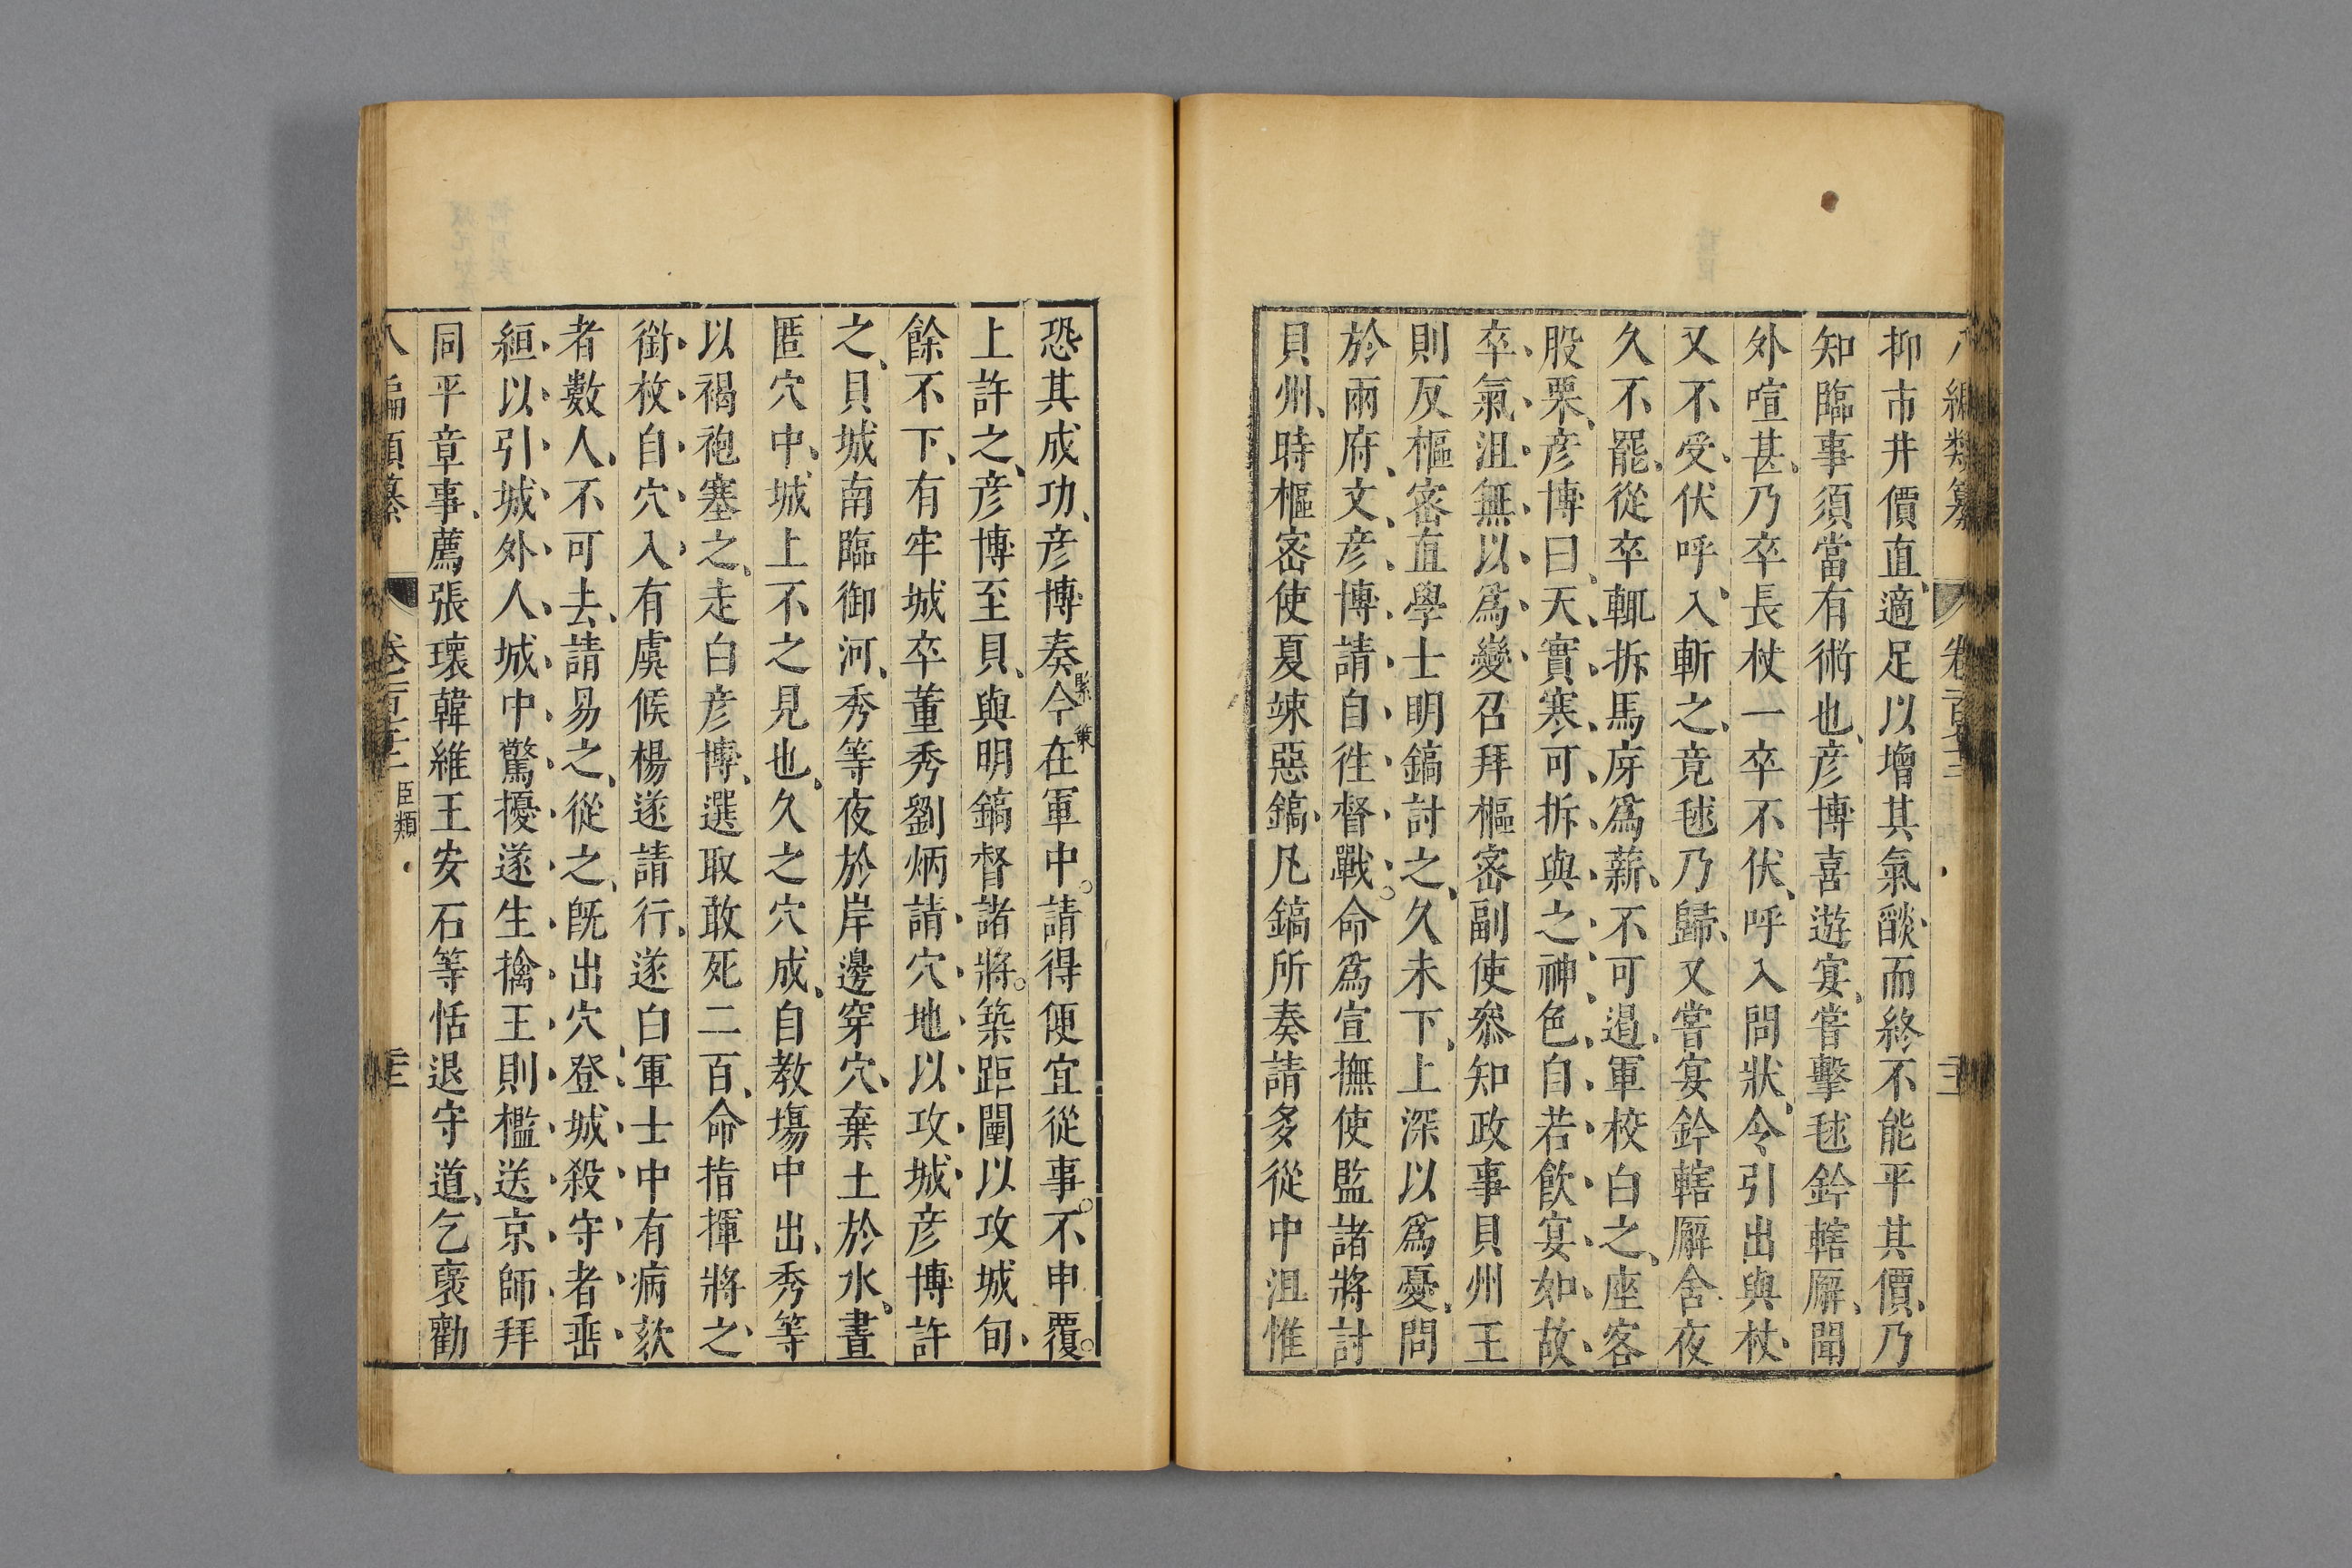 抑市井價直適足以增其氣燄而終不能平其價乃
知臨事須當有術也彥博喜遊宴嘗擊毬鈐轄廨聞
外喧甚乃卒長杖一卒不伏呼入問狀令引出與杖
又不受伏呼入斬之竟毬乃歸又嘗宴鈐轄廨舍夜
久不罷從卒輒拆馬房爲薪不可遏軍校白之座客
股栗彥博曰天實寒可拆與之神色自若飲宴如故
卒氣沮無以爲變召拜樞密副使叅知政事貝州王
則反樞密直學士明鎬討之久未下上深以爲憂問
於兩府文彥博請自徃督戰命爲宣撫使監諸將討
貝州時樞密使夏竦惡鎬凡鎬所奏請多從中沮惟
恐其成功彥博奏今在軍中請得便宜從事不申覆
緊策
上許之彥博至貝與明鎬督諸將築距闉以攻城旬
餘不下有牢城卒董秀劉炳請穴地以攻城彥博許
之貝城南臨御河秀等夜於岸邊穿穴棄土於水晝
匿穴中城上不之見也久之穴成自教塲中出秀等
以褐袍塞之走白彥博選取敢死二百命指揮將之
銜枚自穴入有虞候楊遂請行遂白軍士中有病欬
者數人不可去請易之從之旣出穴登城殺守者垂
絙以引城外人城中驚擾遂生擒王則檻送京師拜
同平章事薦張瓌韓維王安石等恬退守道乞褒勸
臣類